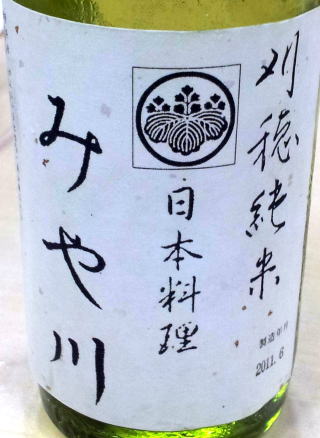 刈穂純米
日本料理
みや川
製造年月
2011. 6